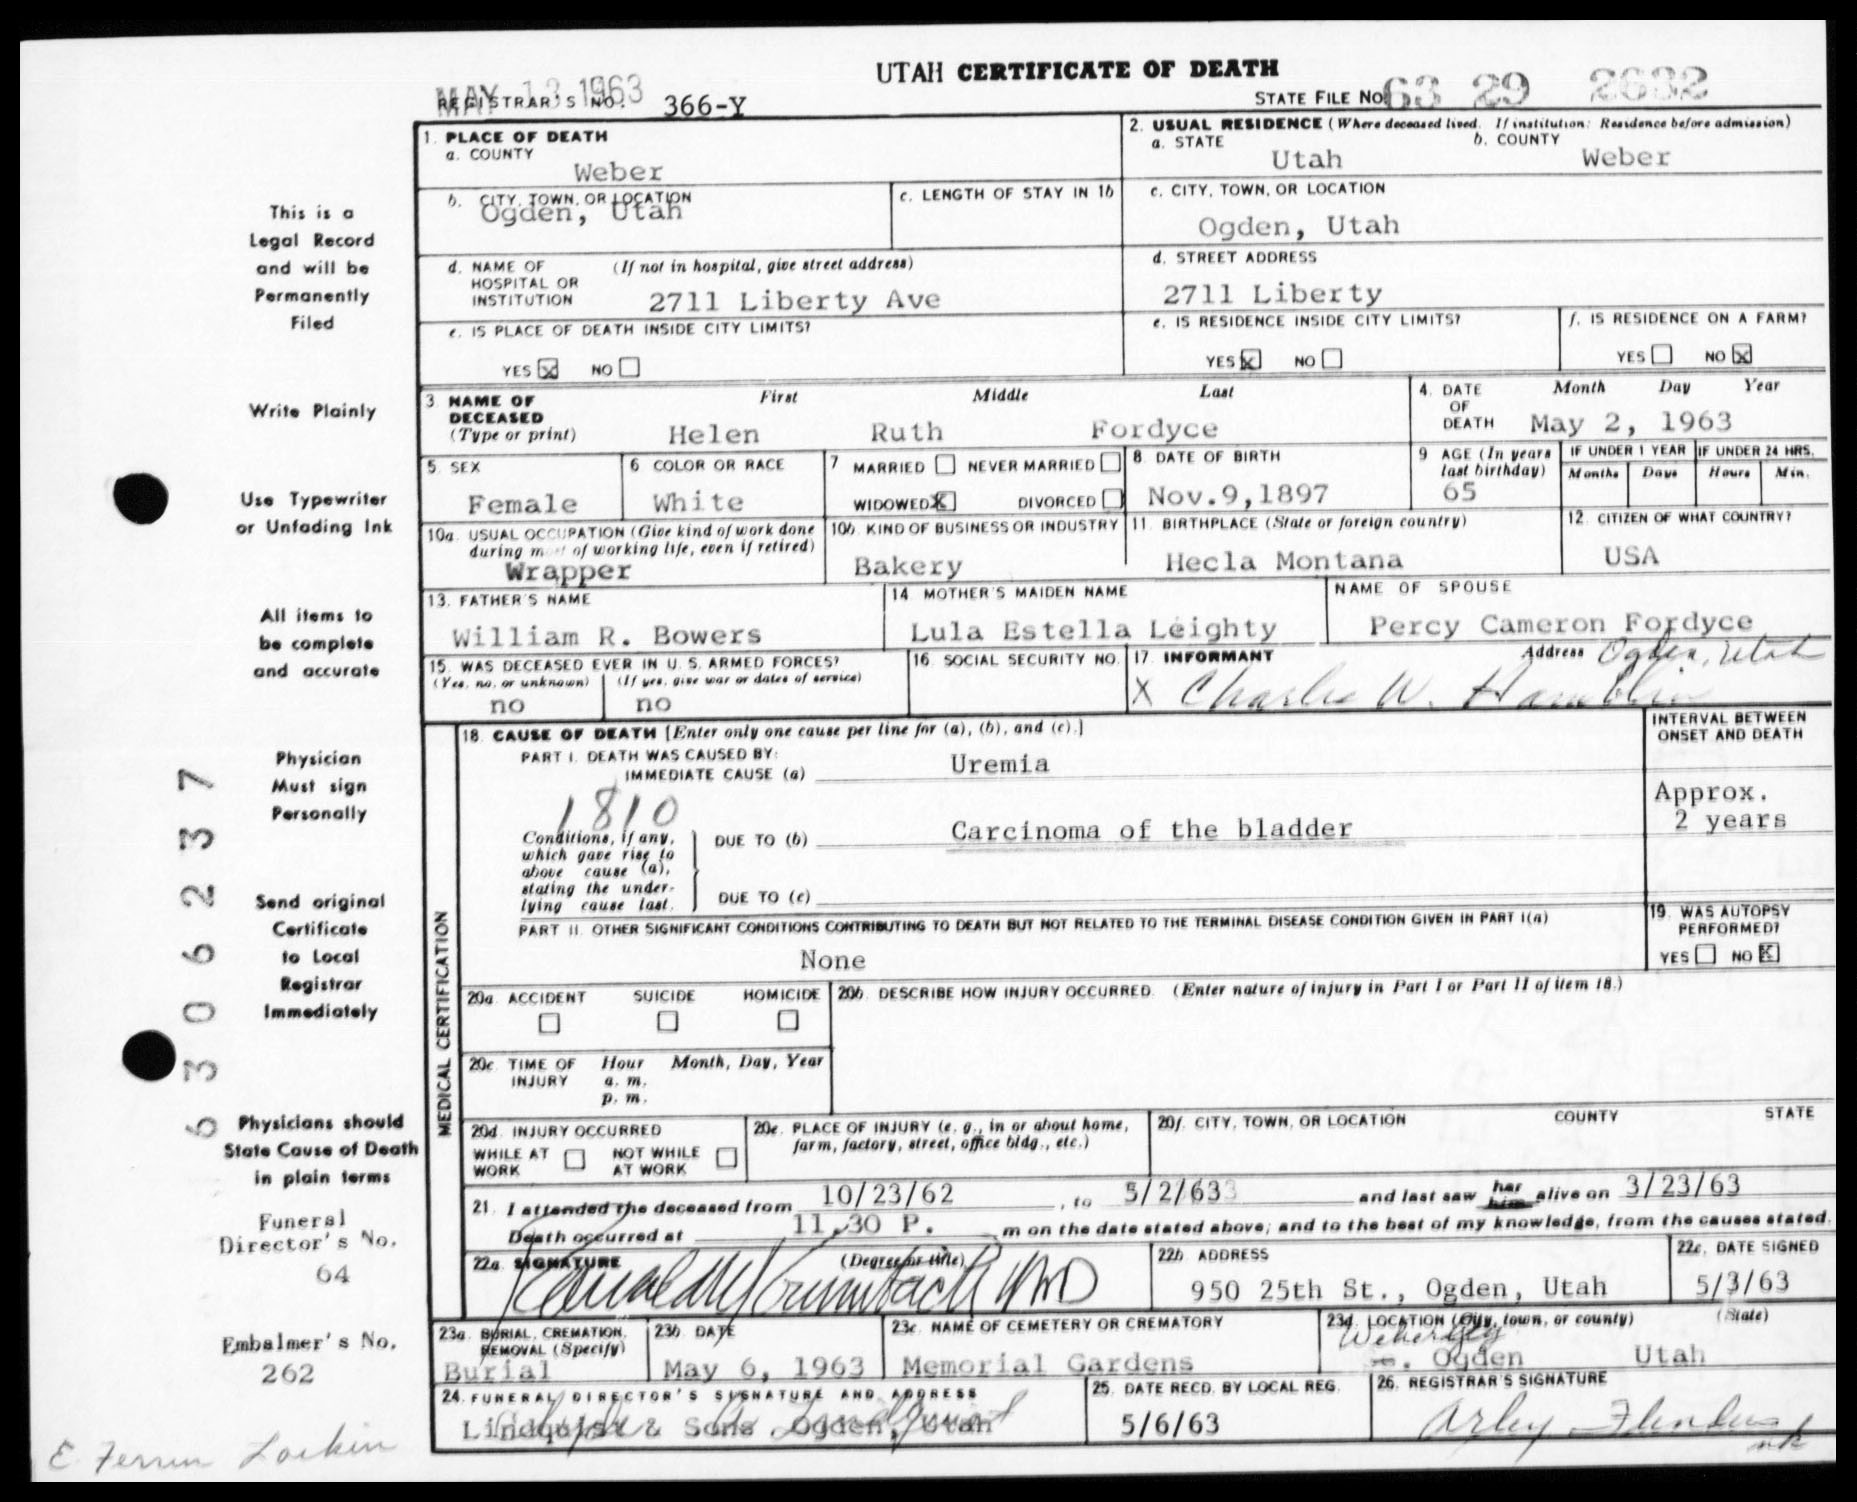 UTAH CERTIFICATE OF DEATH
MAY 13 1963
REGISTRAR'S NO. 366-Y
STATE FILE NO. 63 29 2632
1. PLACE OF DEATH
a. COUNTY
Weber
2. USUAL RESIDENCE (Where deceased lived. If institution: Residence before admission)
a. STATE b. COUNTY
Utah Weber
b. CITY, TOWN, OR LOCATION
Ogden, Utah
c. LENGTH OF STAY IN 1b
c. CITY, TOWN, OR LOCATION
Ogden, Utah
d. NAME OF (If not in hospital, give street address)
HOSPITAL OR
INSTITUTION 2711 Liberty Ave
d. STREET ADDRESS
2711 Liberty
e. IS PLACE OF DEATH INSIDE CITY LIMITS?
YES X NO
e. IS RESIDENCE INSIDE CITY LIMITS?
YES X NO
f. IS RESIDENCE ON A FARM?
YES NO X
3 NAME OF DECEASED
(Type or print)
First Middle Last
Helen Ruth Fordyce
4. DATE OF DEATH
Month Day Year
May 2, 1963
5. SEX
Female
6 COLOR OR RACE
White
7 MARRIED NEVER MARRIED
WIDOWED X DIVORCED
8. DATE OF BIRTH
Nov.9,1897
9 AGE (In years last birthday)
65
IF UNDER 1 YEAR
Months Days
IF UNDER 24 HRS.
Hours Min.
10a. USUAL OCCUPATION (Give kind of work done
during most of working life, even if retired)
Wrapper
10b. KIND OF BUSINESS OR INDUSTRY
Bakery
11. BIRTHPLACE (State or foreign country)
Hecla Montana
12. CITIZEN OF WHAT COUNTRY?
USA
13. FATHER'S NAME
William R. Bowers
14. MOTHER'S MAIDEN NAME
Lula Estella Leighty
NAME OF SPOUSE
Percy Cameron Fordyce
15. WAS DECEASED EVER IN U. S. ARMED FORCES?
(Yes, no, or unknown) (If yes, give war or dates of service)
no no
16. SOCIAL SECURITY NO.
17. INFORMANT Address Ogden, Utah
X Charlie W. Hamblin
MEDICAL CERTIFICATION
18. CAUSE OF DEATH [Enter only one cause per line for (a), (b), and (c).]
INTERVAL BETWEEN
ONSET AND DEATH
PART I. DEATH WAS CAUSED BY:
IMMEDIATE CAUSE (a) Uremia
1810
Approx.
2 years
Conditions, if any,
which gave rise to
above cause (a),
stating the under-
lying cause last.
DUE TO (b) Carcinoma of the bladder
DUE TO (c)
PART II. OTHER SIGNIFICANT CONDITIONS CONTRIBUTING TO DEATH BUT NOT RELATED TO THE TERMINAL DISEASE CONDITION GIVEN IN PART I(a)
None
19. WAS AUTOPSY
PERFORMED?
YES NO X
20a. ACCIDENT SUICIDE HOMICIDE
20b. DESCRIBE HOW INJURY OCCURRED. (Enter nature of injury in Part I or Part II of item 18.)
20c. TIME OF INJURY Hour Month, Day, Year
a. m.
p. m.
20d. INJURY OCCURRED
WHILE AT WORK NOT WHILE AT WORK
20e. PLACE OF INJURY (e. g., in or about home,
farm, factory, street, office bldg., etc.)
20f. CITY, TOWN, OR LOCATION COUNTY STATE
21. I attended the deceased from 10/23/62, to 5/2/63 and last saw her him alive on 3/23/63
Death occurred at 11.30 P. m on the date stated above; and to the best of my knowledge, from the causes stated.
22a. SIGNATURE (Degree or title)
MD
22b ADDRESS
950 25th St., Ogden, Utah
22c. DATE SIGNED
5/3/63
23a. BURIAL, CREMATION,
REMOVAL (Specify)
Burial
23b. DATE
May 6, 1963
23c. NAME OF CEMETERY OR CREMATORY
Memorial Gardens
23d. LOCATION (City, town, or county) (State)
Ogden Utah
24. FUNERAL DIRECTOR'S SIGNATURE AND ADDRESS
Lindquist & Sons Ogden, Utah
25. DATE RECD. BY LOCAL REG.
5/6/63
26. REGISTRAR'S SIGNATURE
This is a
Legal Record
and will be
Permanently
Filed
Write Plainly
Use Typewriter
or Unfading Ink
All items to
be complete
and accurate
Physician
Must sign
Personally
Send original
Certificate
to Local
Registrar
Immediately
Physicians should
State Cause of Death
in plain terms
Funeral
Director's No.
64
Embalmer's No.
262
E. Ferrin Larkin
6 3 0 6 2 3 3 7